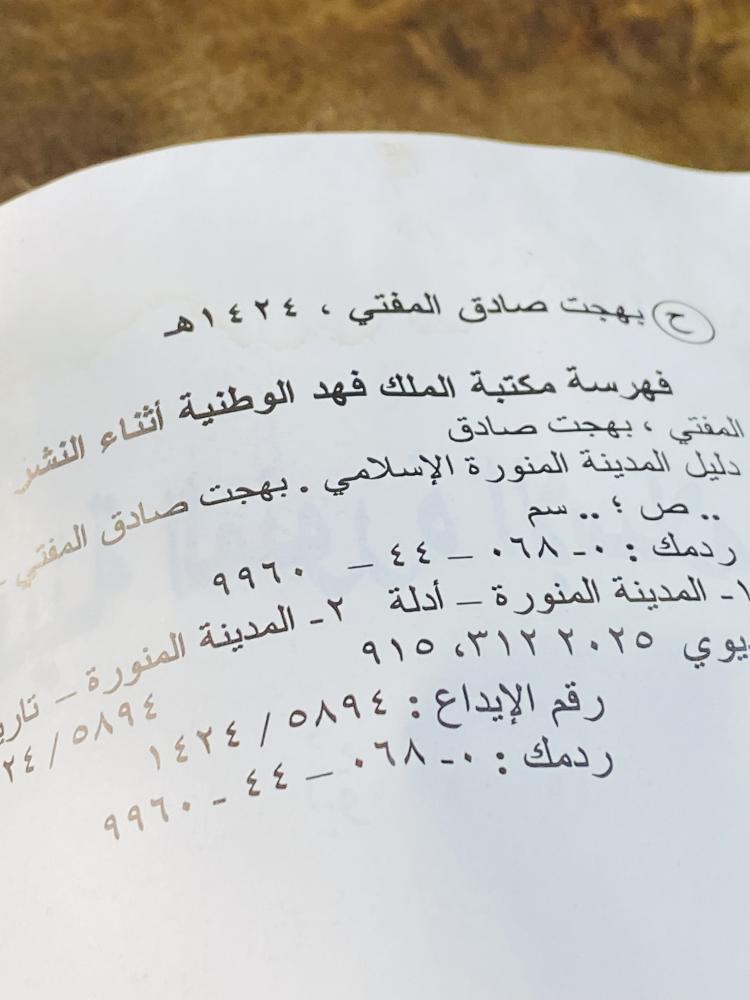 ح بهجت صادق المفتي ، ١٤٢٤هـ
فهرسة مكتبة الملك فهد الوطنية أثناء النشر
المفتي ، بهجت صادق
دليل المدينة المنورة الإسلامي . بهجت صادق المفتي –
.. ص ؛ .. سم
ردمك : ٠-٠٦٨ – ٤٤ – ٩٩٦٠
١- المدينة المنورة – أدلة ٢- المدينة المنورة –
٩١٥،٣١٢٢٠٢٥ ٥٨٩٤/
رقم الإيداع : ٥٨٩٤ / ١٤٢٤
ردمك : ٠-٠٦٨ – ٤٤ - ٩٩٦٠